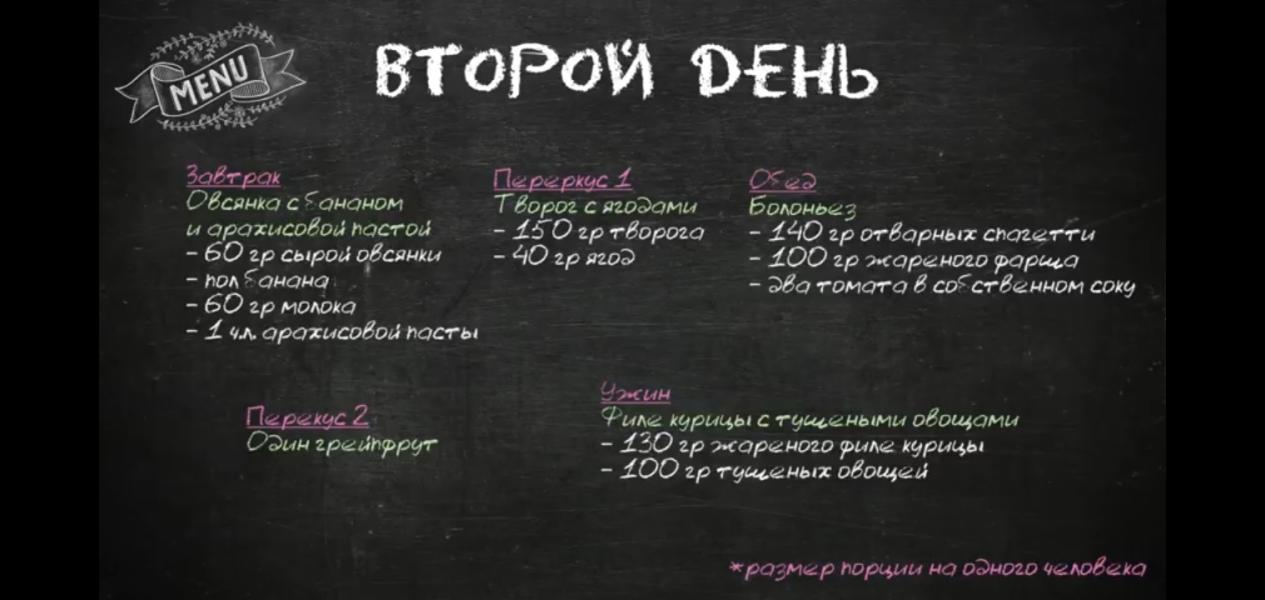 MENU
ВТОРОЙ ДЕНЬ
Завтрак
Овсянка с бананом
и арахисовой пастой
- 60 гр сырой овсянки
- пол банана
- 60 гр молока
- 1 ч.л. арахисовой пасты
Перекус 1
Творог с ягодами
- 150 гр творога
- 40 гр ягод
Обед
Болоньез
- 140 гр отварных спагетти
- 100 гр жареного фарша
- два томата в собственном соку
Перекус 2
Один грейпфрут
Ужин
Филе курицы с тушеными овощами
- 130 гр жареного филе курицы
- 100 гр тушеных овощей
*размер порции на одного человека